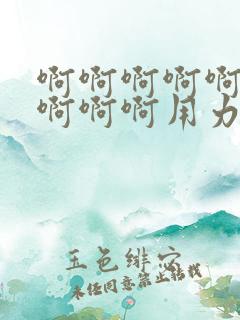 啊啊啊啊啊
啊啊啊用力
玉色绯穴
未经同意禁止转载